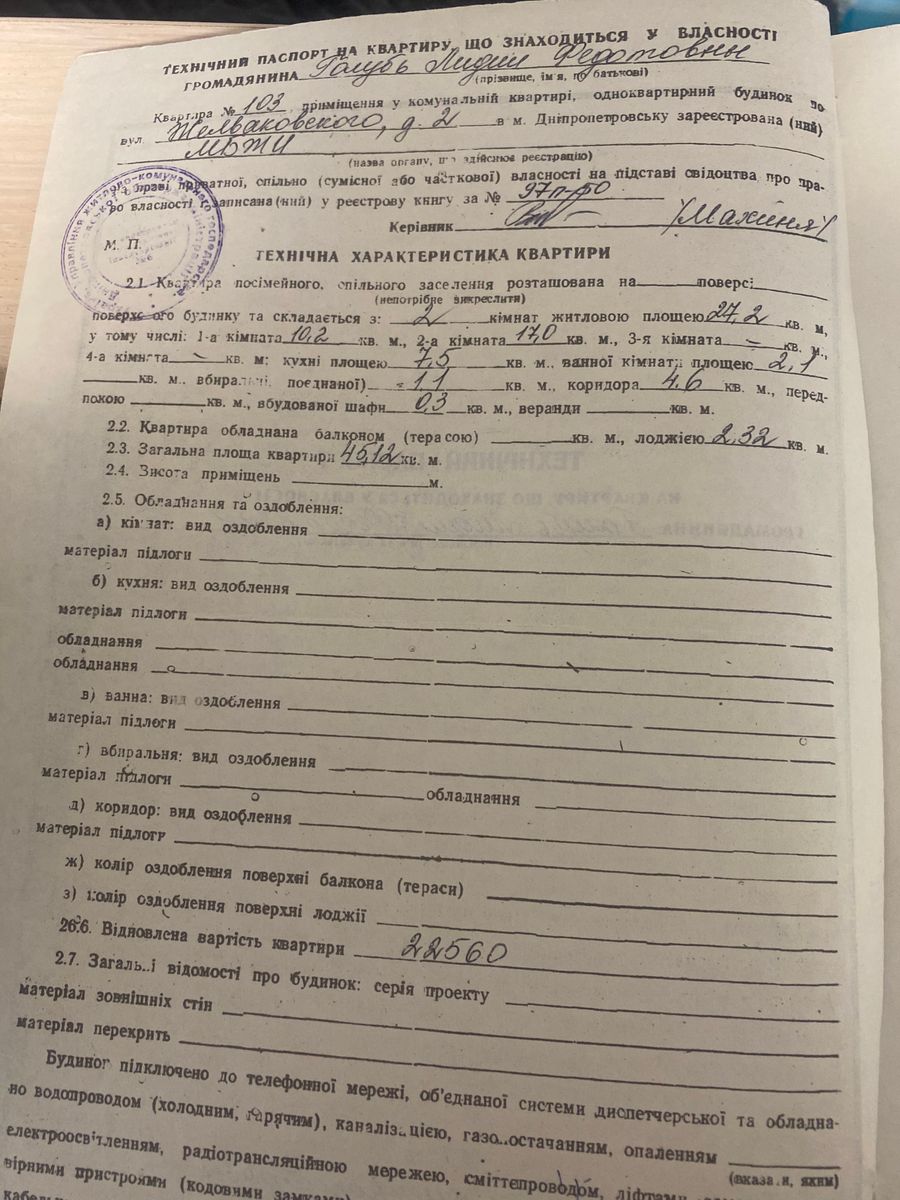 ТЕХНІЧНИЙ ПАСПОРТ НА КВАРТИРУ, ЩО ЗНАХОДИТЬСЯ У ВЛАСНОСТІ
ГРОМАДЯНИНА Голубь Лидии Федотовны
(прізвище, ім'я, по батькові)
Квартира № 103, приміщення у комунальній квартирі, одноквартирний будинок по
вул. Желваковского, д. 2 в м. Дніпропетровську зареєстрована (ний)
МБЖИ
(назва органу, що здійснює реєстрацію)
на праві приватної, спільно (сумісної або часткової) власності на підставі свідоцтва про пра-
во власності і записана (ний) у реєстрову книгу за № 97п-50
Керівник /Махиня/
М. П.
ТЕХНІЧНА ХАРАКТЕРИСТИКА КВАРТИРИ
2.1. Квартира посімейного, спільного заселення розташована на поверсі
(непотрібне викреслити)
поверхового будинку та складається з: 2 кімнат житловою площею 27,2 кв. м,
у тому числі: 1-а кімната 10,2 кв. м., 2-а кімната 17,0 кв. м., 3-я кімната – кв. м.,
4-а кімната – кв. м; кухні площею 7,5 кв. м., ванної кімнати площею 2,1
кв. м., вбиральні, поєднаної) - 1,1 кв. м., коридора 4,6 кв. м., перед-
покою кв. м., вбудованої шафи 0,3 кв. м., веранди кв. м.
2.2. Квартира обладнана балконом (терасою) кв. м., лоджією 2,32 кв. м.
2.3. Загальна площа квартири 45,12 кв. м.
2.4. Висота приміщень м.
2.5. Обладнання та оздоблення:
а) кімнат: вид оздоблення
матеріал підлоги
б) кухня: вид оздоблення
матеріал підлоги
обладнання
обладнання
в) ванна: вид оздоблення
матеріал підлоги
г) вбиральня: вид оздоблення
матеріал підлоги обладнання
д) коридор: вид оздоблення
матеріал підлоги
ж) колір оздоблення поверхні балкона (тераси)
з) колір оздоблення поверхні лоджії
26.6. Відновлена вартість квартири 22560
2.7. Загальні відомості про будинок: серія проекту
матеріал зовнішніх стін
матеріал перекрить
Будинок підключено до телефонної мережі, об'єднаної системи диспетчерської та обладна-
но водопроводом (холодним, гарячим), каналізацією, газопостачанням, опаленням
(вказати, яким)
електроосвітленням, радіотрансляційною мережею, сміттепроводом, ліфтами
вірними пристроями (кодовими замками)